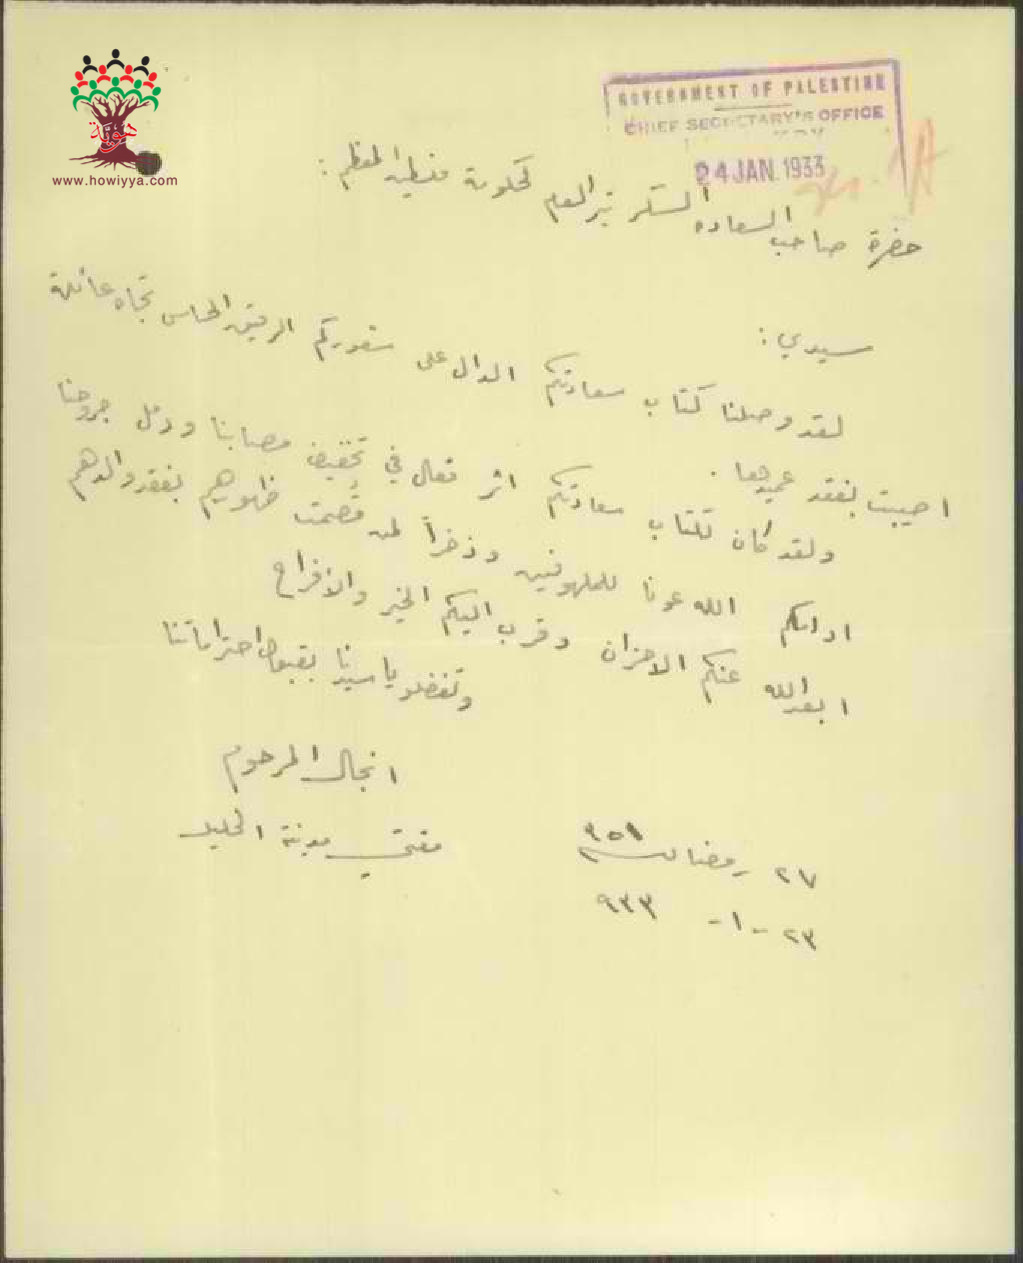 هوية
www.howiyya.com
GOVERNMENT OF PALESTINE
CHIEF SECRETARY'S OFFICE
24 JAN. 1933
حضرة صاحب السعاده السكرتير العام لحكومة فلسطين المعظم :
سيدي :
لقد وصلنا كتاب سعادتكم الدال على شعوركم الرقيق الحساس تجاه عائلة
اصيبت بفقد عميدها .
ولقد كان لكتاب سعادتكم اثر فعال في تخفيف مصابنا ودمل جروحنا
ادامكم الله عونا للملهوفين وذخراً لمن قصمت ظهورهم بفقد والدهم
ابعد الله عنكم الاحزان وقرب اليكم الخير والافراح
وتفضلو يا سيدنا بقبول احتراماتنا
انجال المرحوم
مفتي مدينة الخليل
٢٧ رمضان سنة ٣٥١
٢٣ - ١ - ٩٣٣